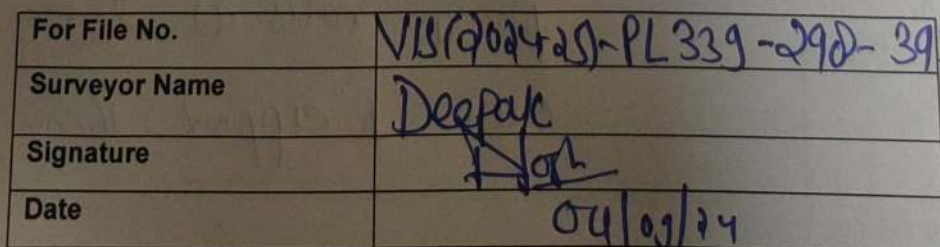 For File No. VIS(2024-25)-PL339-298-39
Surveyor Name Deepak
Signature
Date 04/09/24